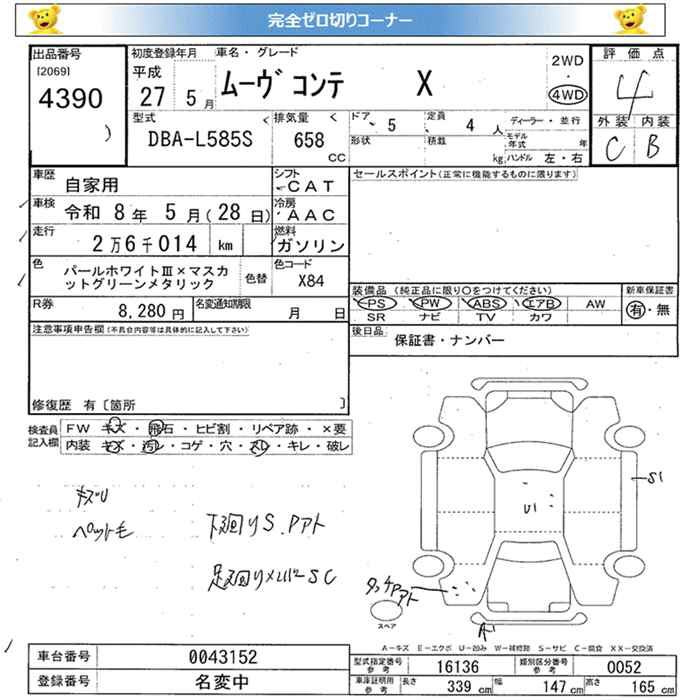 完全ゼロ切りコーナー
出品番号
[2069]
4390
初度登録年月
平成
27 5月
車名・グレード
ムーヴ コンテ X
2WD
・
4WD
評価点
4
外装 内装
C B
型式
DBA-L585S
排気量
658
CC
ドア 5
定員 4人
形状
積載 kg
ディーラー・並行
モデル年式 年
ハンドル 左・右
車歴
自家用
シフト
CAT
車検
令和 8年 5月(28日)
冷房
AAC
走行
2万6千014 km
燃料
ガソリン
色
パールホワイトⅢ×マスカ
ットグリーンメタリック
色替
色コード
X84
R券
8,280円
名変通知期限
月 日
セールスポイント(正常に機能するものに限ります)
装備品 (純正品に限り○をつけてください)
PS PW ABS エアB AW
SR ナビ TV カワ
新車保証書
有・無
後日品
保証書・ナンバー
注意事項申告欄(不具合内容等は具体的に記入して下さい)
修復歴 有 [箇所 ]
検査員
記入欄
FW キズ・飛石・ヒビ割・リペア跡・×要
内装 キズ・汚レ・コゲ・穴・スレ・キレ・破レ
ペット毛
下廻りS.Pアト
足廻りメンバーSC
S1
U1
タッチPアト
A1
スペア
A-キズ E-エクボ U-凹み W-補修跡 S-サビ C-腐食 XX-交換済
車台番号
0043152
登録番号
名変中
型式指定番号
参考
16136
類別区分番号
参考
0052
車庫証明用
参考
長さ 339cm
幅 147cm
高さ 165cm